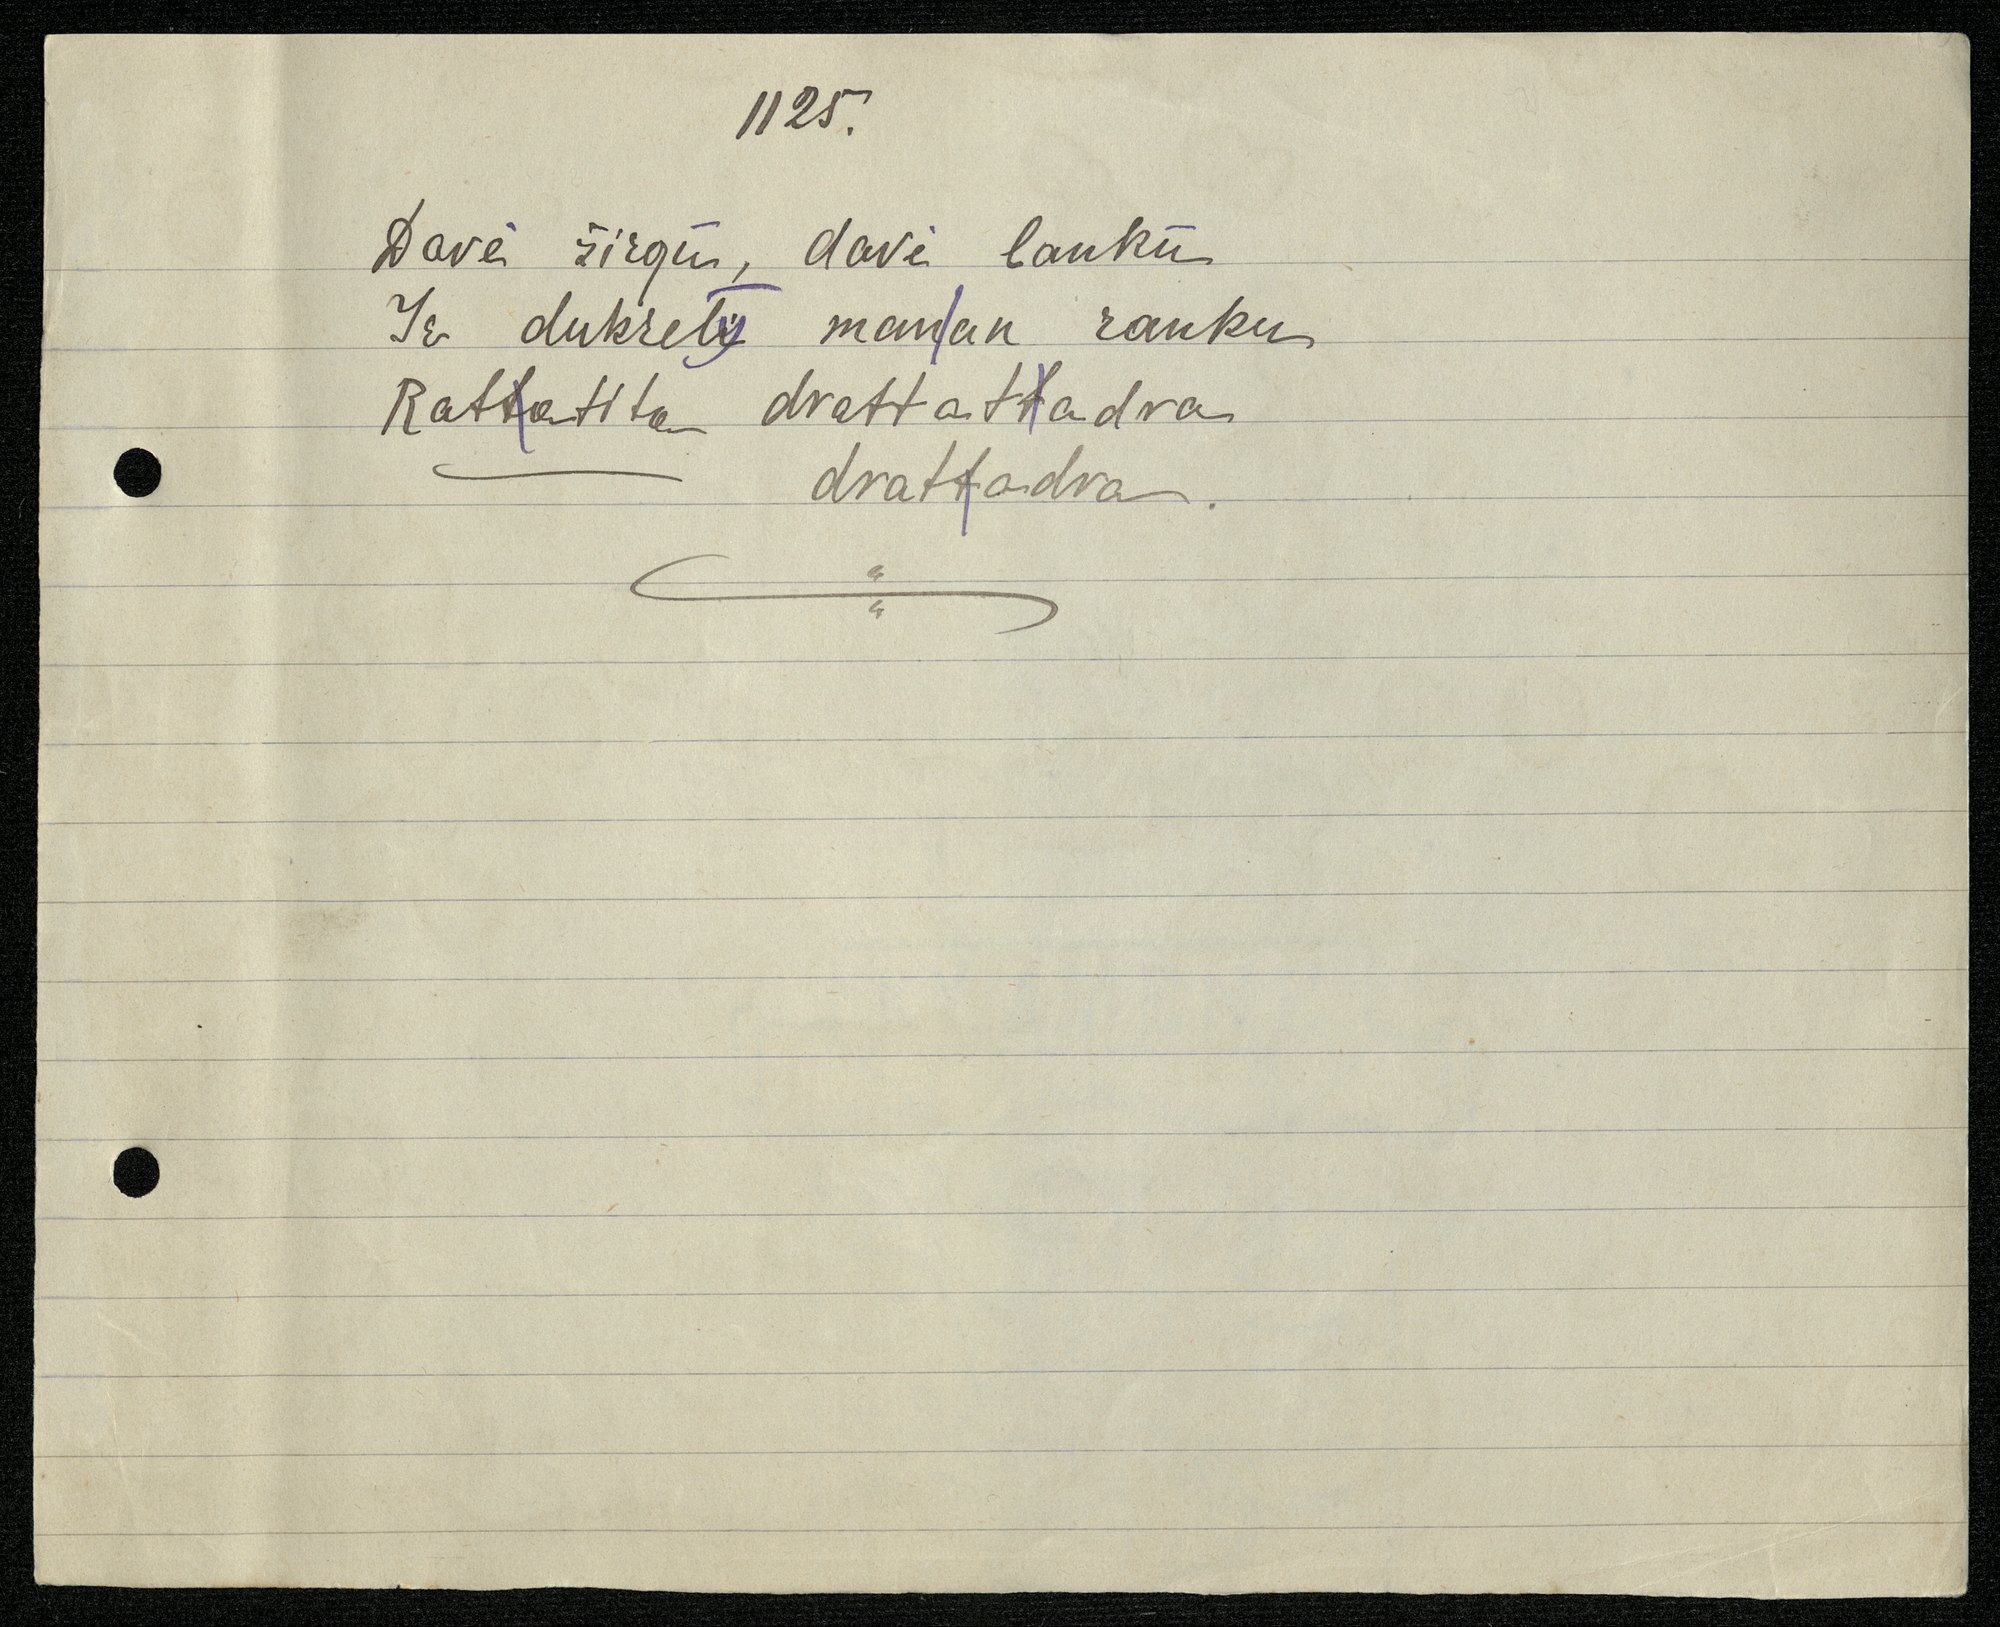 1125.
Davė žirgū, davė laukū
Ir dukrely man an ranku
Rattatita drattattadra
drattadra.